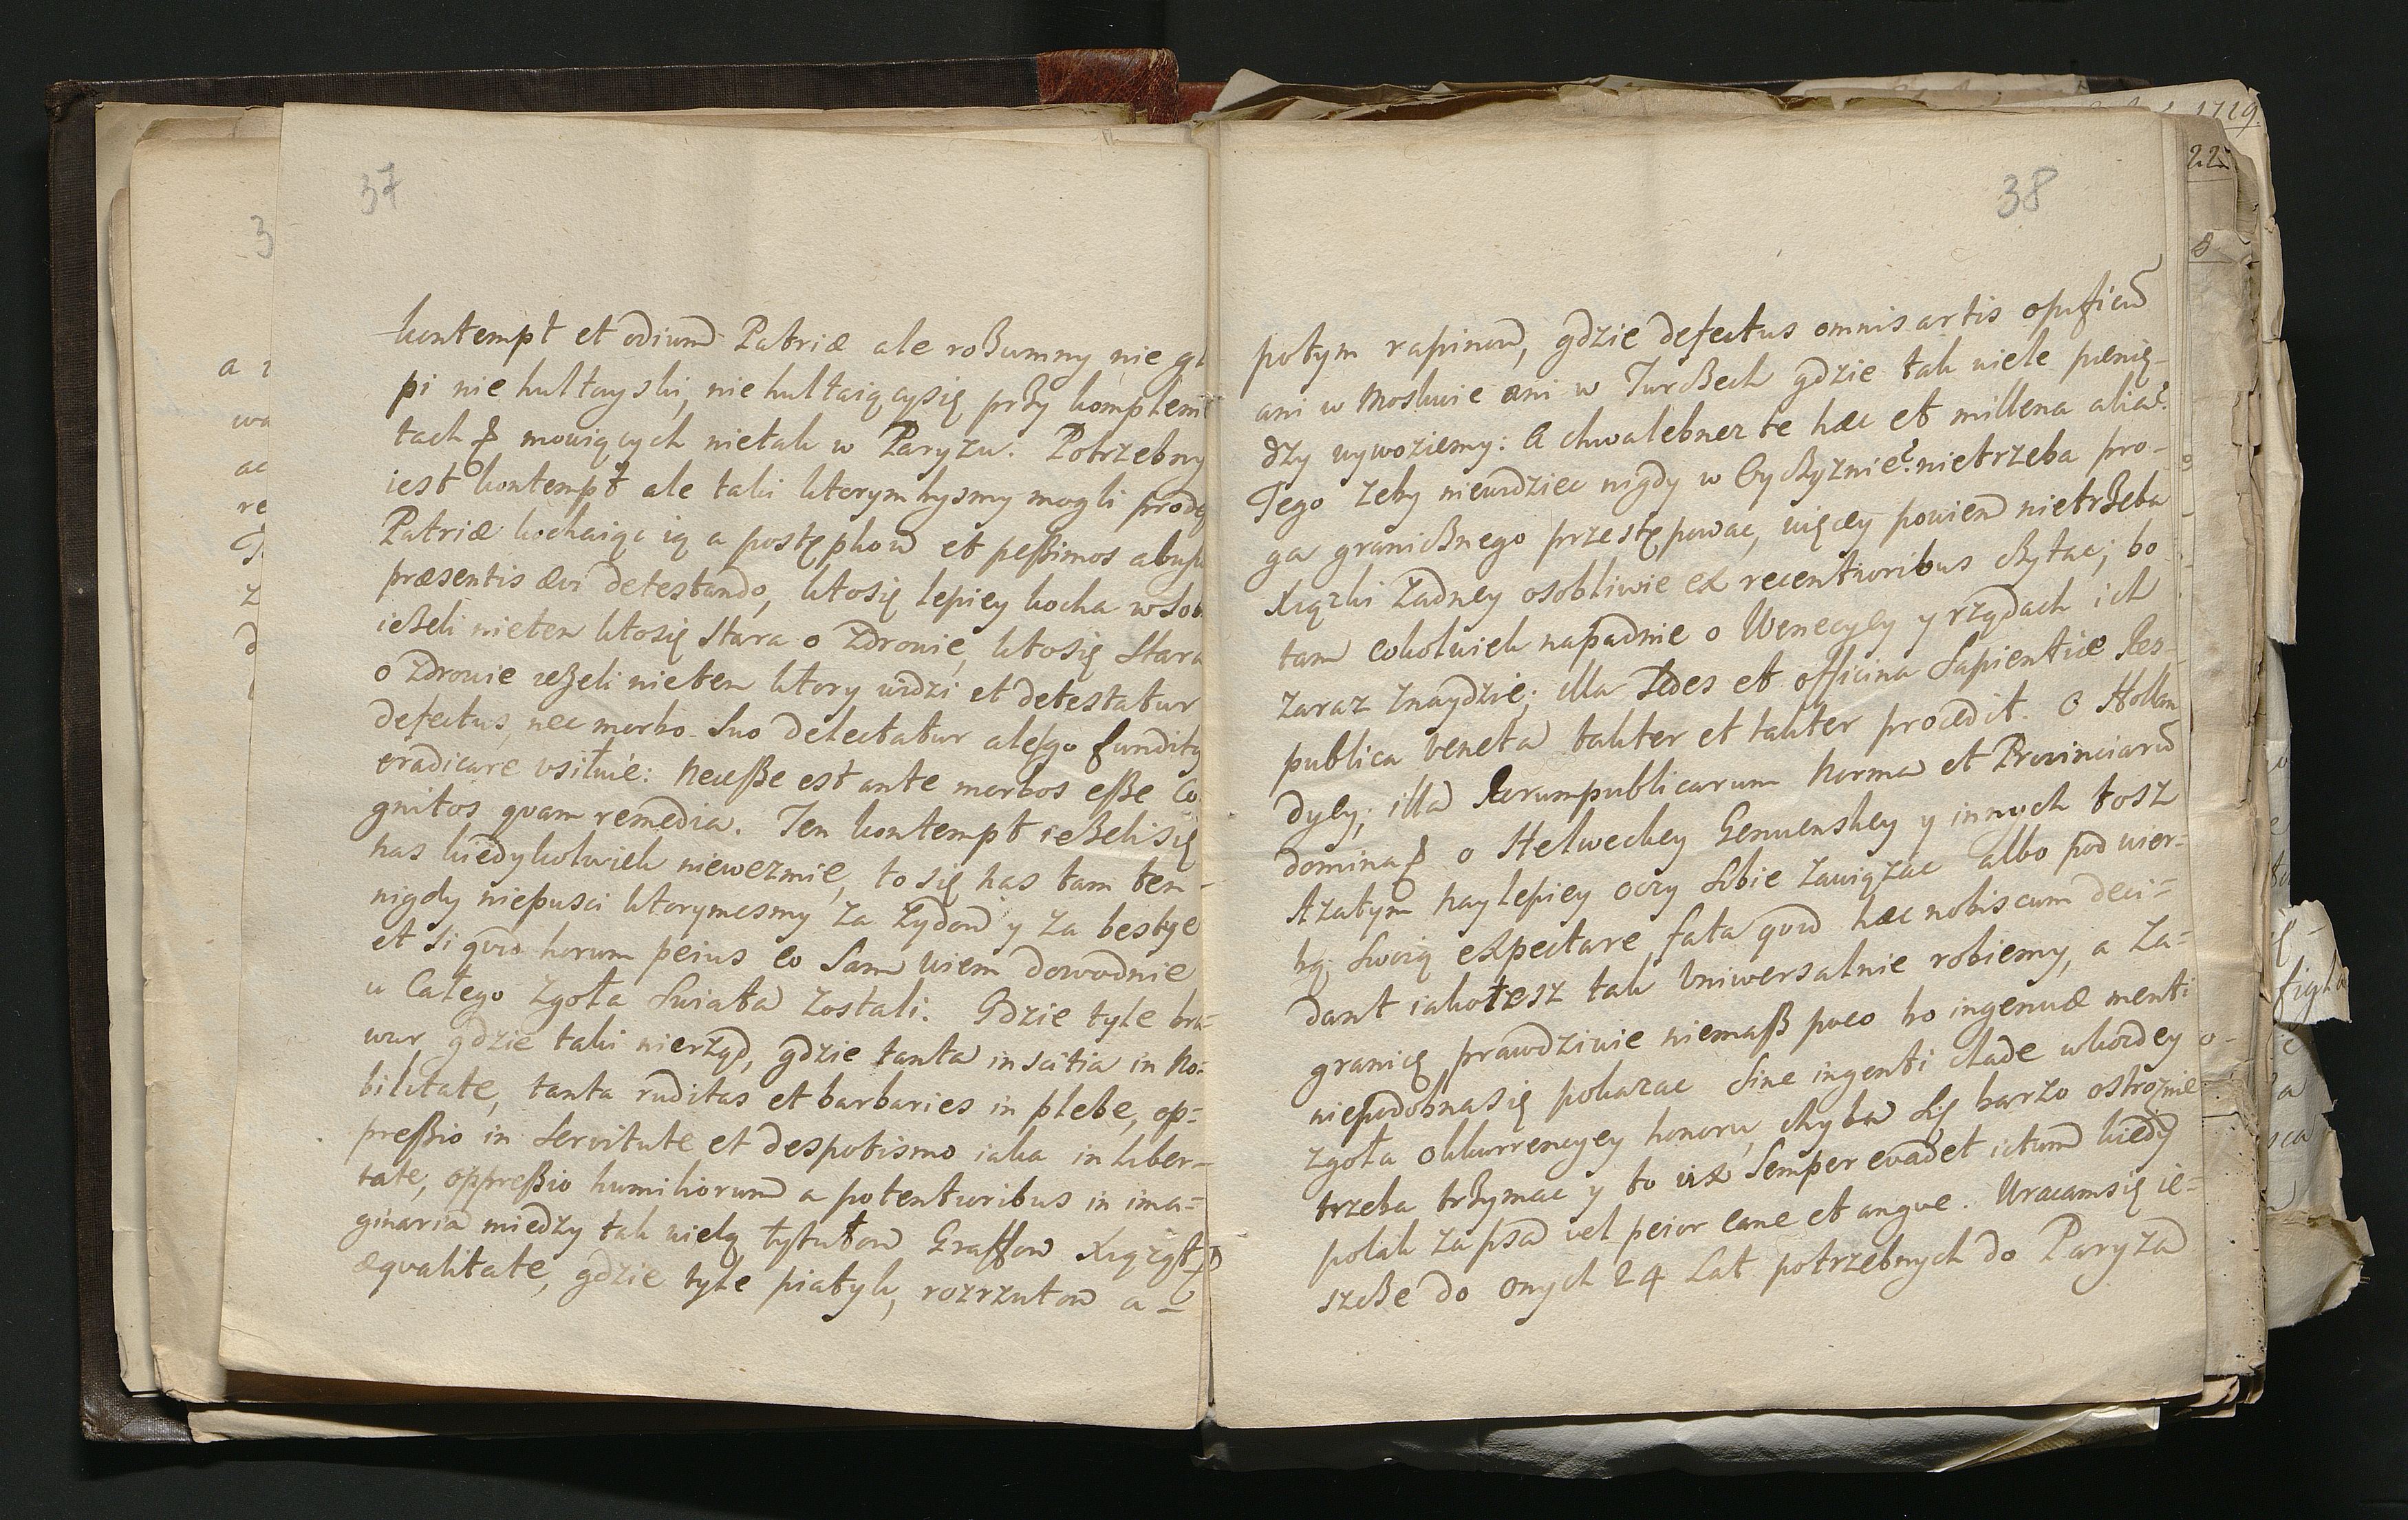 37
kontempt et odium Patriæ ale roßumny nie gł
pi nie hultayski, nie hultaiącysię prży komplemę
tach & mowiących nietak w Paryzu. Potrzebny
iest kontempt ale taki ktorymbysmy mogli prodę
Patriæ kochaiąc ią a postępkow et peßimos abusu
præsentis ævi detestando, ktosię lepiey kocha wsob
ießeli nieten ktosię stara o zdrowie, ktosię stara
o zdrowie ießeli nieten ktory widzi et detestatur
defectus, nec morbo suo delectatur alesgo fundity
eradicare vsiłuie: necesse est ante morbos eße Co-
gnitos qvam remedia. Ten kontempt ießelisię
nas kiedykolwiek niewezmie, to się nas tam ten-
nigdy niepusci ktorymesmy za Zydow y za bestye
et si qvio horum peius eo sam wiem dowodnie
u Całego zgoła swiata zostali. Gdzie tyle bra-
wur gdzie taki nierżąd, gdzie tanta inscitia in No-
bilitate, tanta ruditas et barbaries in plebe, op-
preßio in servitute et despotismo iaka in Liber-
tate, oppreßio humiliorum a potentioribus in ima-
ginaria między tak wielą tytułow Graffow Xiąząt
æqvalitate, gdzie tyle piatyk, rozrzutow a -
38
potym rapinow, gdzie defectus omnis artis opificū
ani w Moskwie ani w Turcßech gdzie tak wiele pienię-
dzy wywoziemy: A chwalebnez te hæc et millena alia?
Tego zeby niewidziec nigdy w Oycßyznie? nietrzeba pro-
ga granicßnego przestępowac, więcey powiem nietrßeba
Xiązki Zadney osobliwie ex recentioribus cßytac; bo
tam cokolwiek napadnie o Wenecyey y rządach ich
zaraz znaydzie; illa Sedes et officina sapientiæ Res-
publica Veneta taliter et taliter procedit. O Hollan
dyey; illa Rerumpublicarum Norma et Provinciarū
domina & o Helweckey Genuenskey y innych tosz
Azatym naylepiey oczy sobie zawiązac albo pod wier-
bą swoią expectare fata qvid hæc nobiscum deci-
dant iakotesz tak Vniwersalnie robiemy, a Za-
granicę prawdziwie niemaß poco bo ingenuæ menti
niepodobnasię pokazac sine ingenti clade wkozdey
zgoła okkurrencyey honoru, chyba się barzo ostroznie
trzeba trżymac y to vix semper evadet ictum kiedy
polak zapsa vel peior cane et angve. Wracamsię ie-
szcße do onych 24 Lat potrzebnych do Paryza